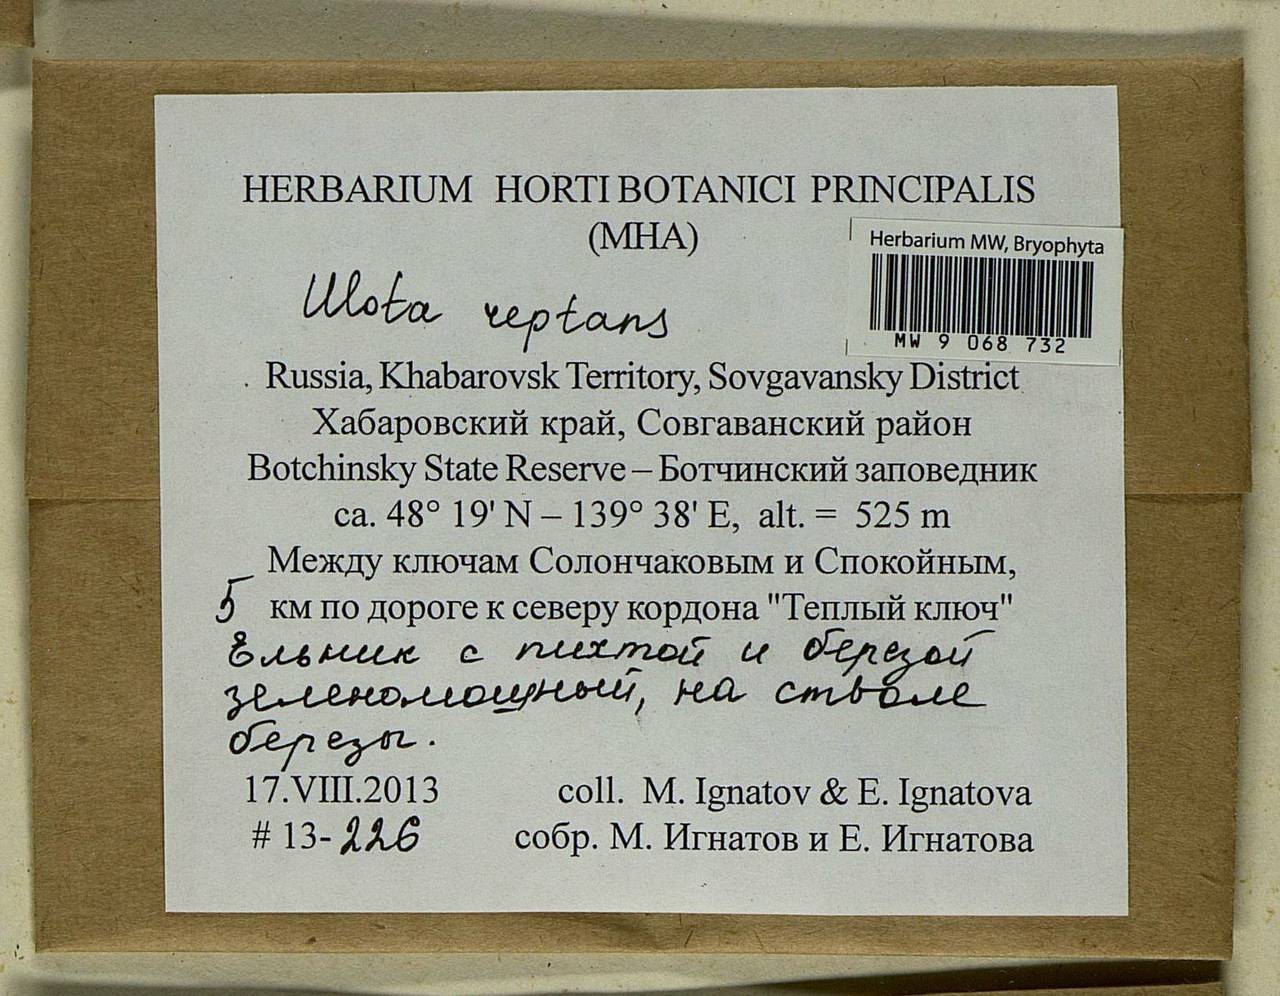 HERBARIUM HORTI BOTANICI PRINCIPALIS
(MHA)
Herbarium MW, Bryophyta
MW 9 068 732
Ulota reptans
Russia, Khabarovsk Territory, Sovgavansky District
Хабаровский край, Совгаванский район
Botchinsky State Reserve – Ботчинский заповедник
ca. 48° 19' N – 139° 38' E, alt. = 525 m
Между ключам Солончаковым и Спокойным,
5 км по дороге к северу кордона "Теплый ключ"
Ельник с пихтой и березой
зеленомощный, на стволе
березы.
17.VIII.2013 coll. M. Ignatov & E. Ignatova
# 13-226 собр. М. Игнатов и Е. Игнатова